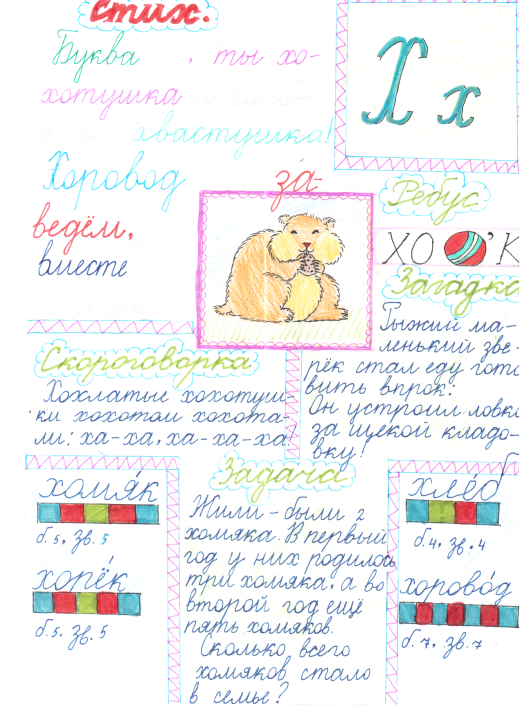 Стих.
Буква , ты хо-
хотушка
хвастушка!
Хоровод за-
ведём,
вместе
Х х
Ребус
ХО 'К
Загадка
Рыжий ма-
ленький зве-
рёк стал еду гото
вить впрок.
Он устроил ловко
за щекой кладо-
вку!
Скороговорка
Хохлатые хохотуш-
ки хохотом хохота-
ли: ха-ха, ха-ха-ха!
хомя́к
б. 5. зв. 5
хорёк
б. 5. зв. 5
Задача
Жили-были 2
хомяка. В первый
год у них родилось
три хомяка, а во
второй год ещё
пять хомяков.
Сколько всего
хомяков стало
в семье?
хлеб
б. 4. зв. 4
хорово́д
б. 7. зв. 7